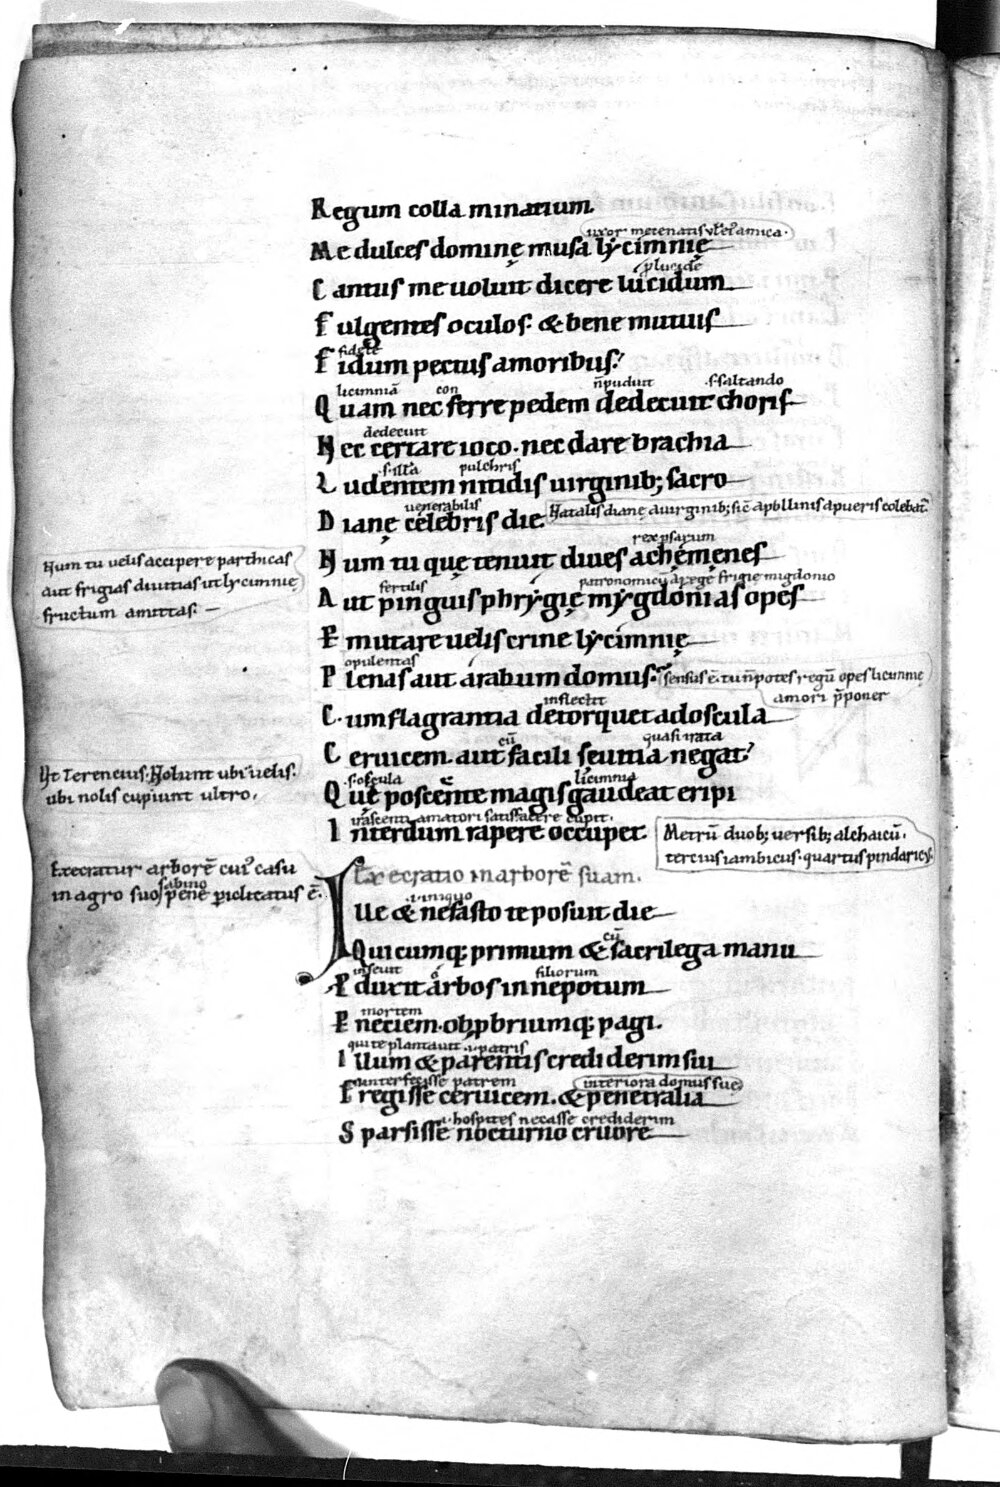 Regum colla minatium.
uxor mecenatis vł eiꝰ amica.
Me dulces dominę musa lycimnię
.i. plucidē
Cantus me voluit dicere lucidum
Fulgentes oculos. & bene mutuis
fidele
Fidum pectus amoribus.
licimniā con ñ puduit .s. saltando
Quam nec ferre pedem dedecuit choris
dedecuit
Nec certare ioco. nec dare brachia
.s. illā pulchris
Ludentem nitidis uirginib; sacro
venerabilis
Dianę celebris die.
Natalis dianę a uirginib; sic̄ apollinis a pueris colebat᷑.
rex psarum
Num tu quę tenuit diues achęmęnes
Num tu uelis accipere parthicas
aut frigias diuitias ut lycimnię
fructum amittas.
fertilis patronomicū a rege frigie migdonio
Aut pinguis phrygię mygdonias opes
Permutare uelis crine lycimnię
opulentas
Plenas aut arabum domus.
sensus ē. tu ñ potes regū opes licinnię
amori p̄poner
inflectit
Cum flagrantia detorquet ad oscula
cū quasi irata
Ceruicem. aut facili seuitia negat
Ut Terencius. Nolunt ubi uelis.
ubi nolis cupiunt ultro.
.s. oscula licimnia
Quę poscente magis gaudeat eripi
irascenti amatori satisfacere cupit.
Interdum rapere occupet
Metrū duob; uersib; alchaicū.
tercius iambicus. quartus pindaricꝰ.
Execratur arborē cuiꝰ casu
in agro suo sabino pene piclitatus ē.
Execratio in arborē suam.
.i. iniquo
Ille & nefasto te posuit die
cū
Quicumq; primum & sacrilega manu
inseuit o filiorum
Produxit arbos in nepotum
mortem
Perniciem. obprobriumq; pagi.
qui te plantauit .i. patris
Illum & parentis crediderim sui
interfecisse patrem interiora domus suę
Fregisse ceruicem. & penetralia
.i. hospites necasse crediderim
Sparsisse nocturno cruore